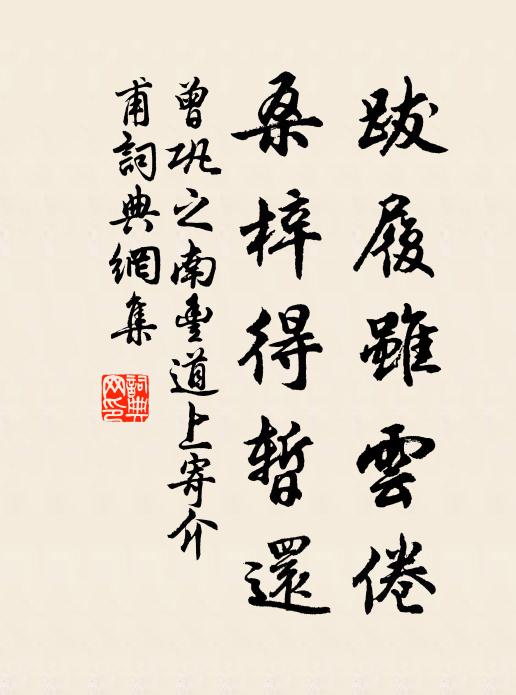 跋履雖雲倦
桑梓得暫還
曾巩之南豊道上寄介
甫詞典網集
詞典
网印